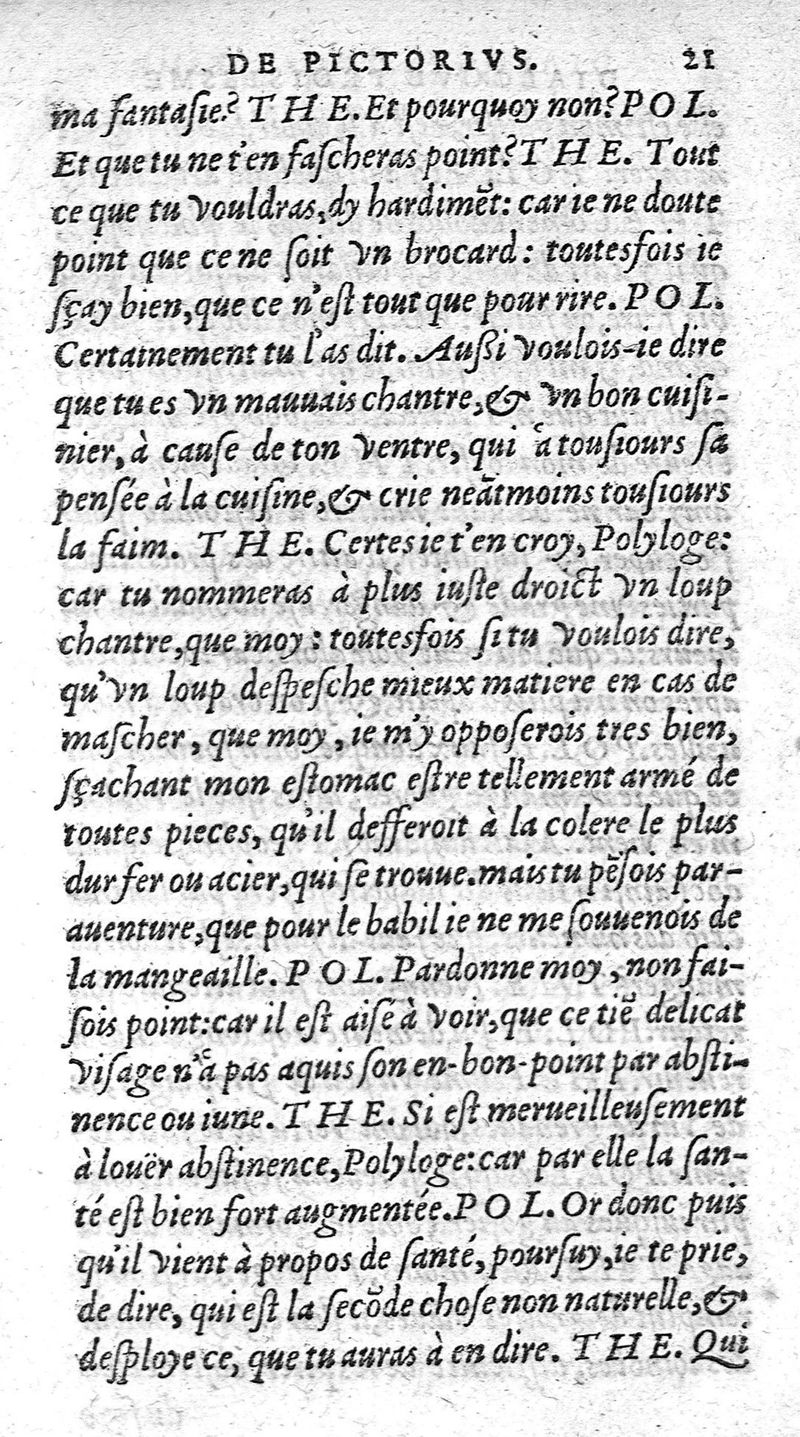 DE PICTORIVS. 21
ma fantaſie? THE. Et pourquoy non? POL.
Et que tu ne t'en faſcheras point? THE. Tout
ce que tu vouldras, dy hardimẽt: car ie ne doute
point que ce ne ſoit vn brocard: toutesfois ie
ſçay bien, que ce n'eſt tout que pour rire. POL.
Certainement tu l'as dit. Außi voulois-ie dire
que tu es vn mauuais chantre, & vn bon cuiſi-
nier, à cauſe de ton ventre, qui à touſiours ſa
penſée à la cuiſine, & crie neãtmoins touſiours
la faim. THE. Certes ie t'en croy, Polyloge:
car tu nommeras à plus iuſte droict vn loup
chantre, que moy: toutesfois ſi tu voulois dire,
qu'vn loup deſpeſche mieux matiere en cas de
maſcher, que moy, ie m'y oppoſerois tres bien,
ſçachant mon eſtomac eſtre tellement armé de
toutes pieces, qu'il defferoit à la colere le plus
dur fer ou acier, qui ſe trouue. mais tu pẽſois par-
auenture, que pour le babil ie ne me ſouuenois de
la mangeaille. POL. Pardonne moy, non fai-
ſois point: car il eſt aiſé à voir, que ce tiẽ delicat
viſage n'à pas aquis ſon en-bon-point par abſti-
nence ou iune. THE. Si eſt merueilleuſement
à louër abſtinence, Polyloge: car par elle la ſan-
té eſt bien fort augmentée. POL. Or donc puis
qu'il vient à propos de ſanté, pourſuy, ie te prie,
de dire, qui eſt la ſecõde choſe non naturelle, &
deſploye ce, que tu auras à en dire. THE. Qui